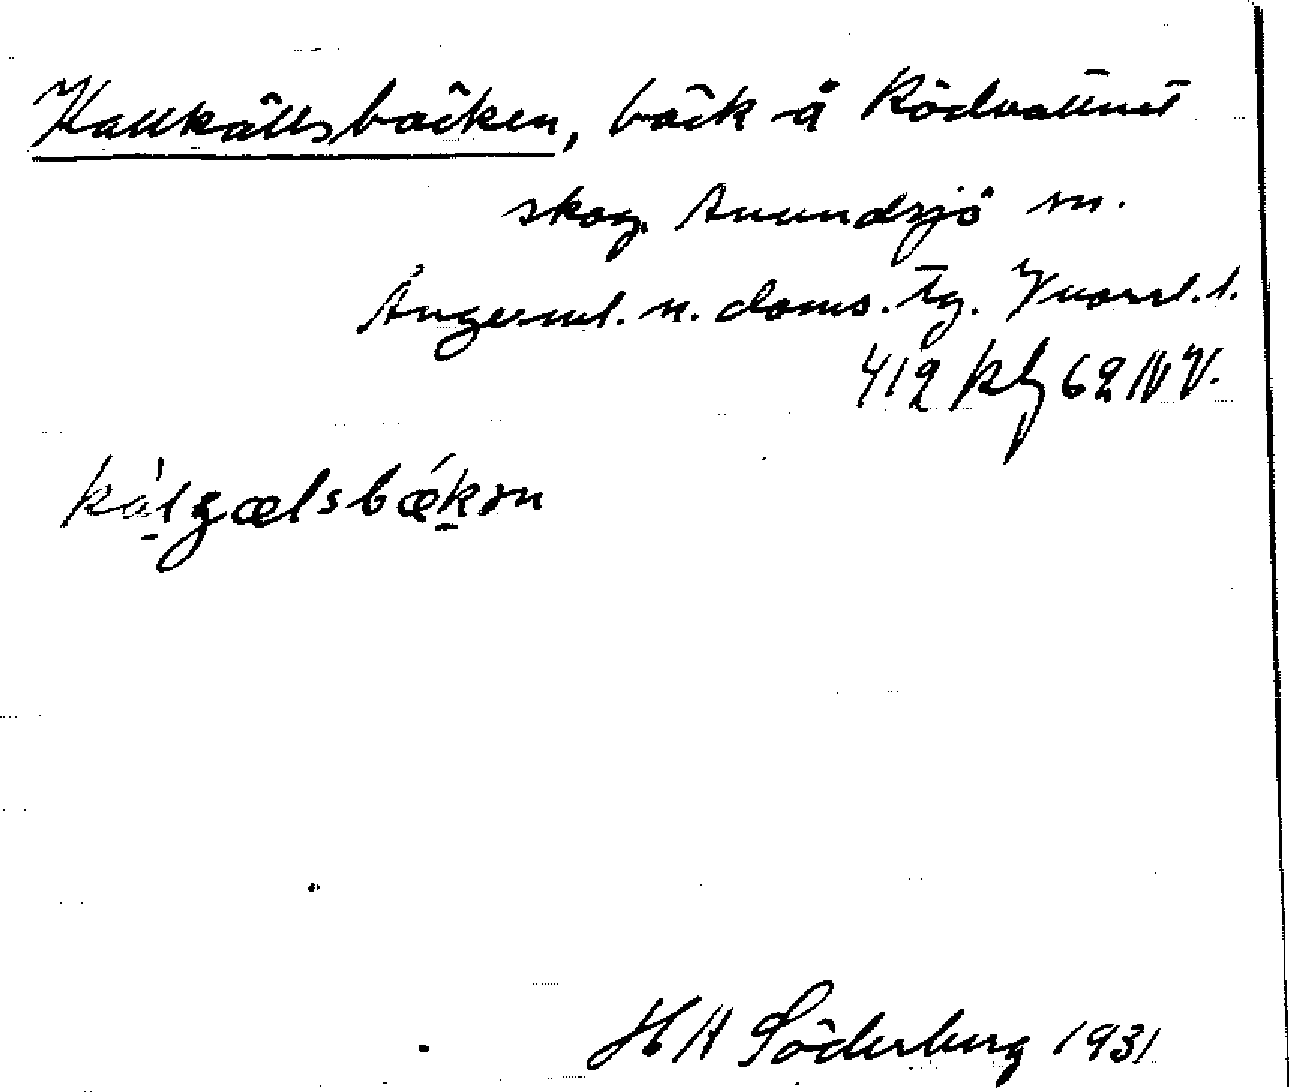 Kallkällsbäcken, bäck å Rödvattnet
skog, Anundsjö sn.
Ångerml. n. doms. tg. Vnorrl. l.
412 kbl 62 NV.
kálgælsbækən
H H Söderberg 1931